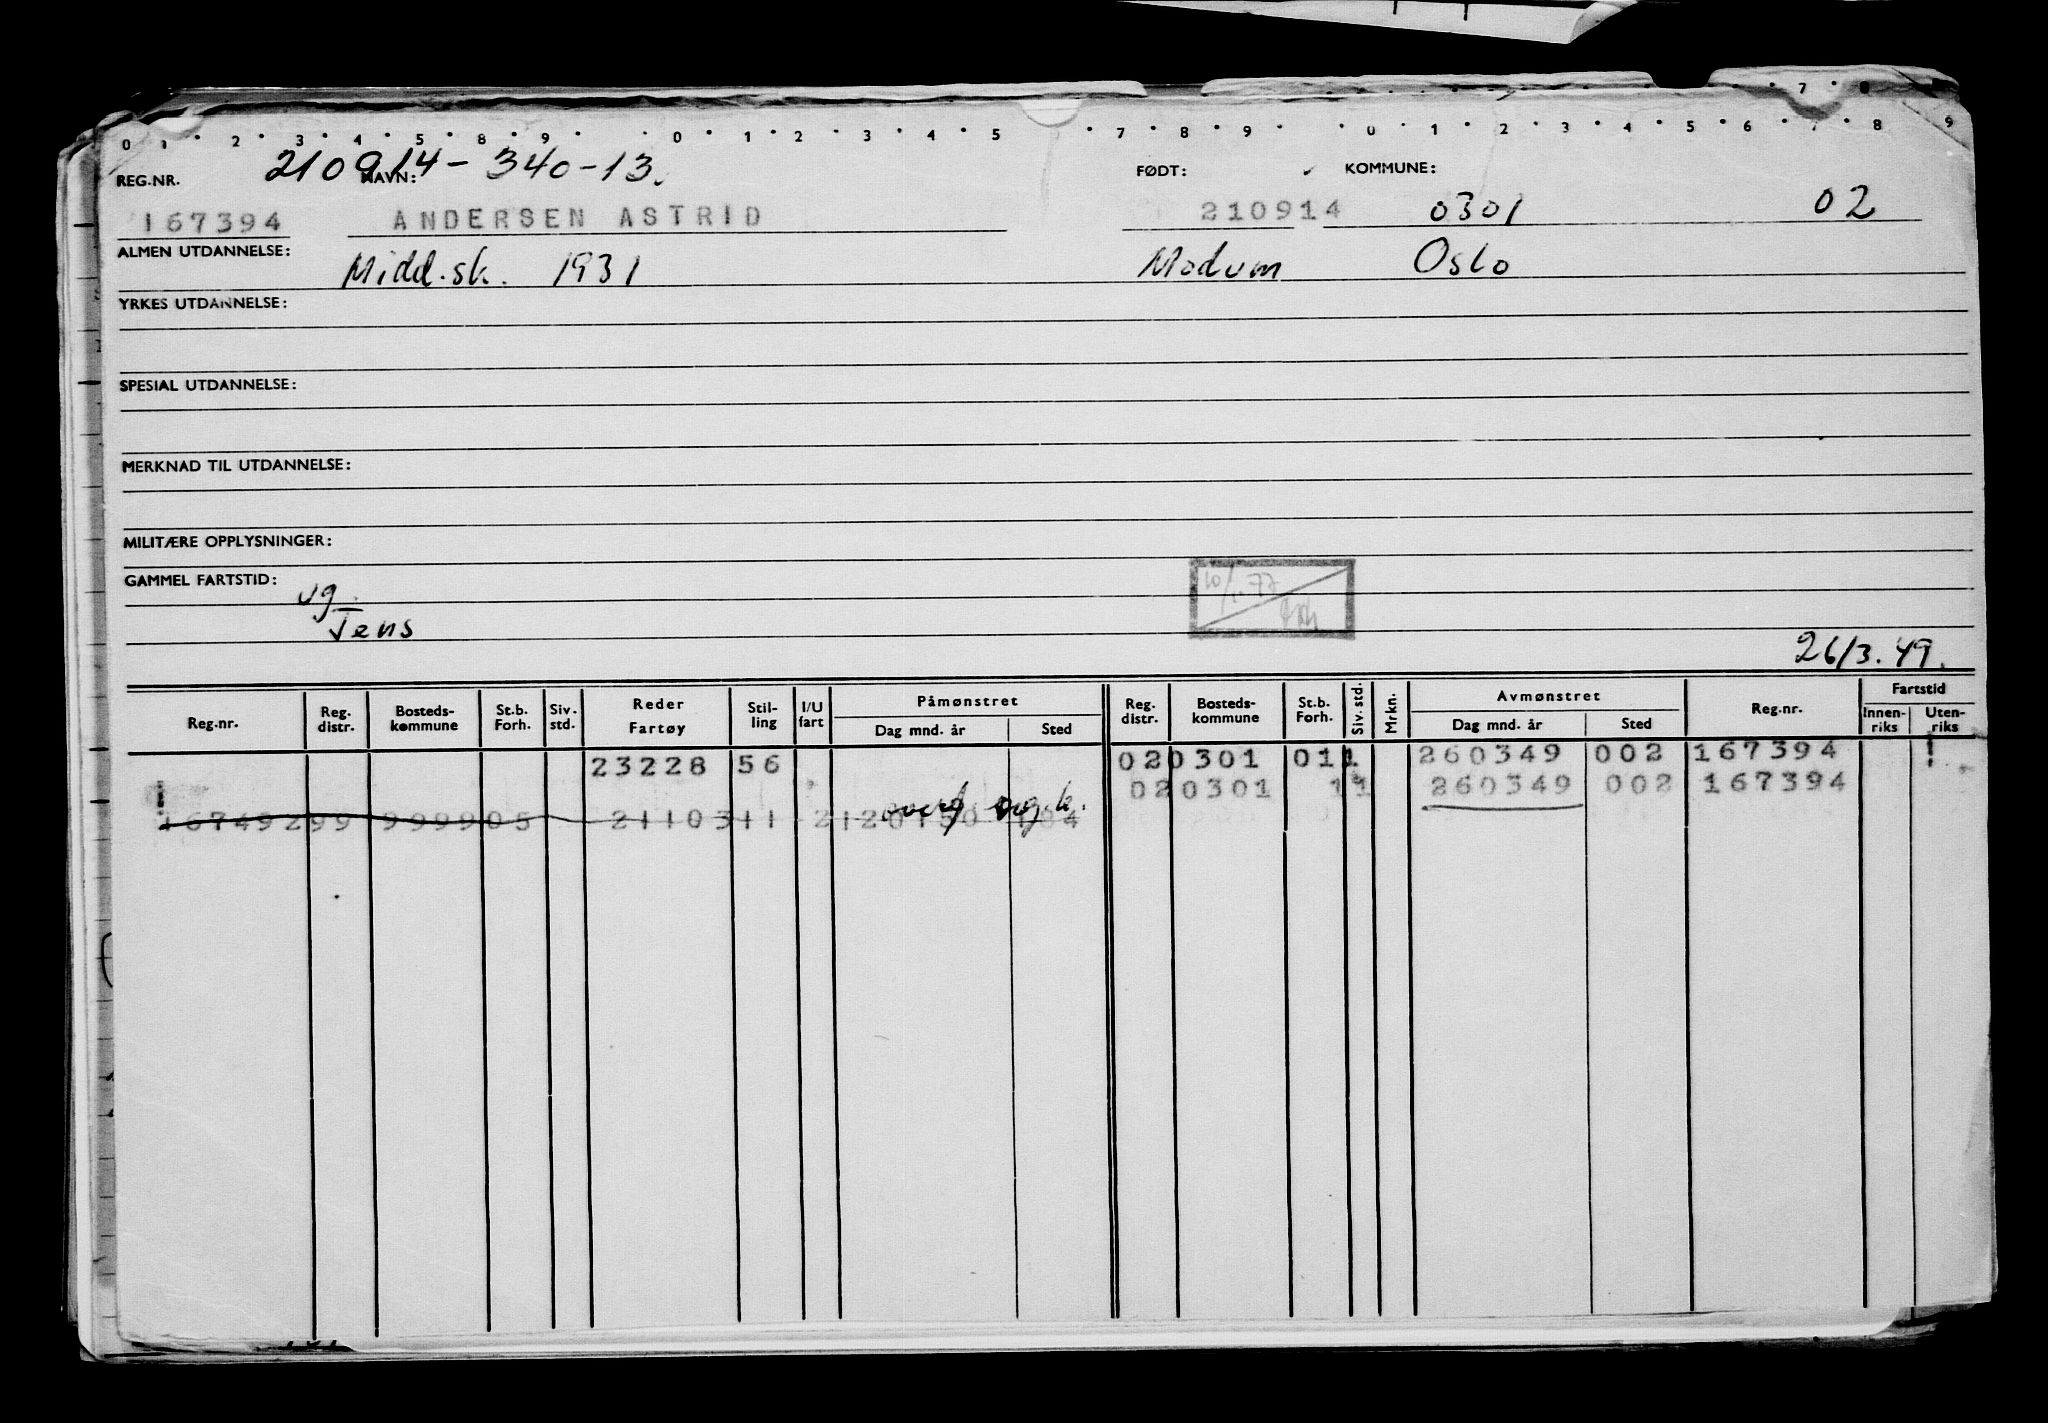 0 1 2 3 4 5 8 9 0 1 2 3 4 5 7 8 9 0 1 2 3 4 5 6 7 8 9
7 8
REG.NR. NAVN: 210914-340-13. FØDT: KOMMUNE:
167394 ANDERSEN ASTRID 210914 0301 02
ALMEN UTDANNELSE: Midd.sk. 1931 Modum Oslo
YRKES UTDANNELSE:
SPESIAL UTDANNELSE:
MERKNAD TIL UTDANNELSE:
MILITÆRE OPPLYSNINGER:
GAMMEL FARTSTID:
vg.
Jens
26/3.49.
Reg.nr. Reg. distr. Bosteds- kommune St.b. Forh. Siv. std. Reder Fartøy Stil- ling I/U fart Påmønstret Dag mnd. år Sted Reg. distr. Bosteds- kommune St.b. Forh. Siv. std. Mrkn. Avmønstret Dag mnd. år Sted Reg.nr. Fartstid Innen- riks Uten- riks
23228 56 02 0301 011 260349 002 167394 !
! 02 0301 11 260349 002 167394
167492 99 9999 05 21103 11 2 120150 184